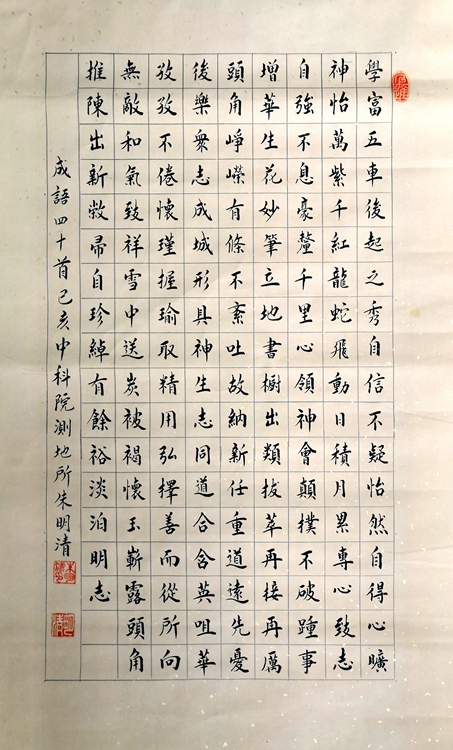 學富五車後起之秀自信不疑怡然自得心曠
神怡萬紫千紅龍蛇飛動日積月累專心致志
自強不息豪釐千里心領神會顛撲不破踵事
增華生花妙筆立地書橱出類拔萃再接再厲
頭角崢嶸有條不紊吐故納新任重道遠先憂
後樂衆志成城形具神生志同道合含英咀華
孜孜不倦懷瑾握瑜取精用弘擇善而從所向
無敵和氣致祥雪中送炭被褐懷玉嶄露頭角
推陳出新敝帚自珍綽有餘裕淡泊明志
成語四十首己亥中科院測地所朱明清